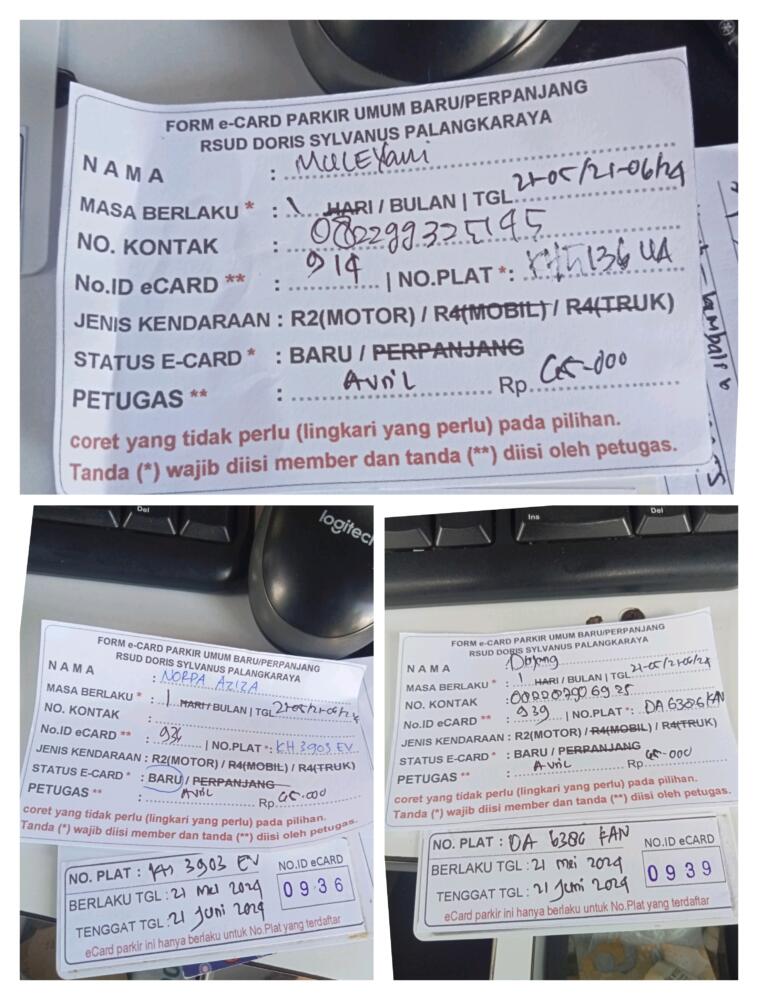 FORM e-CARD PARKIR UMUM BARU/PERPANJANG
RSUD DORIS SYLVANUS PALANGKARAYA
NAMA : MULEYani
MASA BERLAKU * : 1 HARI / BULAN | TGL 21-05/21-06/24
NO. KONTAK :
No.ID eCARD ** : 914 | NO.PLAT *: 5136 UA
JENIS KENDARAAN : R2(MOTOR) / R4(MOBIL) / R4(TRUK)
STATUS E-CARD * : BARU / PERPANJANG
PETUGAS ** : Avril Rp. 65-000
coret yang tidak perlu (lingkari yang perlu) pada pilihan.
Tanda (*) wajib diisi member dan tanda (**) diisi oleh petugas.
Del
logitech
FORM e-CARD PARKIR UMUM BARU/PERPANJANG
RSUD DORIS SYLVANUS PALANGKARAYA
NAMA : NORPA AZIZA
MASA BERLAKU * : 1 HARI / BULAN | TGL 21-05/21-06/24
NO. KONTAK :
No.ID eCARD ** : 936 | NO.PLAT *: KH 3903 EV
JENIS KENDARAAN : R2(MOTOR) / R4(MOBIL) / R4(TRUK)
STATUS E-CARD * : BARU / PERPANJANG
PETUGAS ** : Avril Rp. 65-000
coret yang tidak perlu (lingkari yang perlu) pada pilihan.
Tanda (*) wajib diisi member dan tanda (**) diisi oleh petugas.
NO. PLAT : KH 3903 EV
BERLAKU TGL : 21 Mei 2024
TENGGAT TGL : 21 Juni 2024
NO.ID eCARD
0936
eCard parkir ini hanya berlaku untuk No.Plat yang terdaftar
Ins
Del
FORM e-CARD PARKIR UMUM BARU/PERPANJANG
RSUD DORIS SYLVANUS PALANGKARAYA
NAMA :
MASA BERLAKU * : 1 HARI / BULAN | TGL 21-05/21-06/24
NO. KONTAK :
No.ID eCARD ** : 939 | NO.PLAT *: DA 6386 KAN
JENIS KENDARAAN : R2(MOTOR) / R4(MOBIL) / R4(TRUK)
STATUS E-CARD * : BARU / PERPANJANG
PETUGAS ** : Avril Rp. 65-000
coret yang tidak perlu (lingkari yang perlu) pada pilihan.
Tanda (*) wajib diisi member dan tanda (**) diisi oleh petugas.
NO. PLAT : DA 6386 KAN
BERLAKU TGL : 21 Mei 2024
TENGGAT TGL : 21 Juni 2024
NO.ID eCARD
0939
eCard parkir ini hanya berlaku untuk No.Plat yang terdaftar